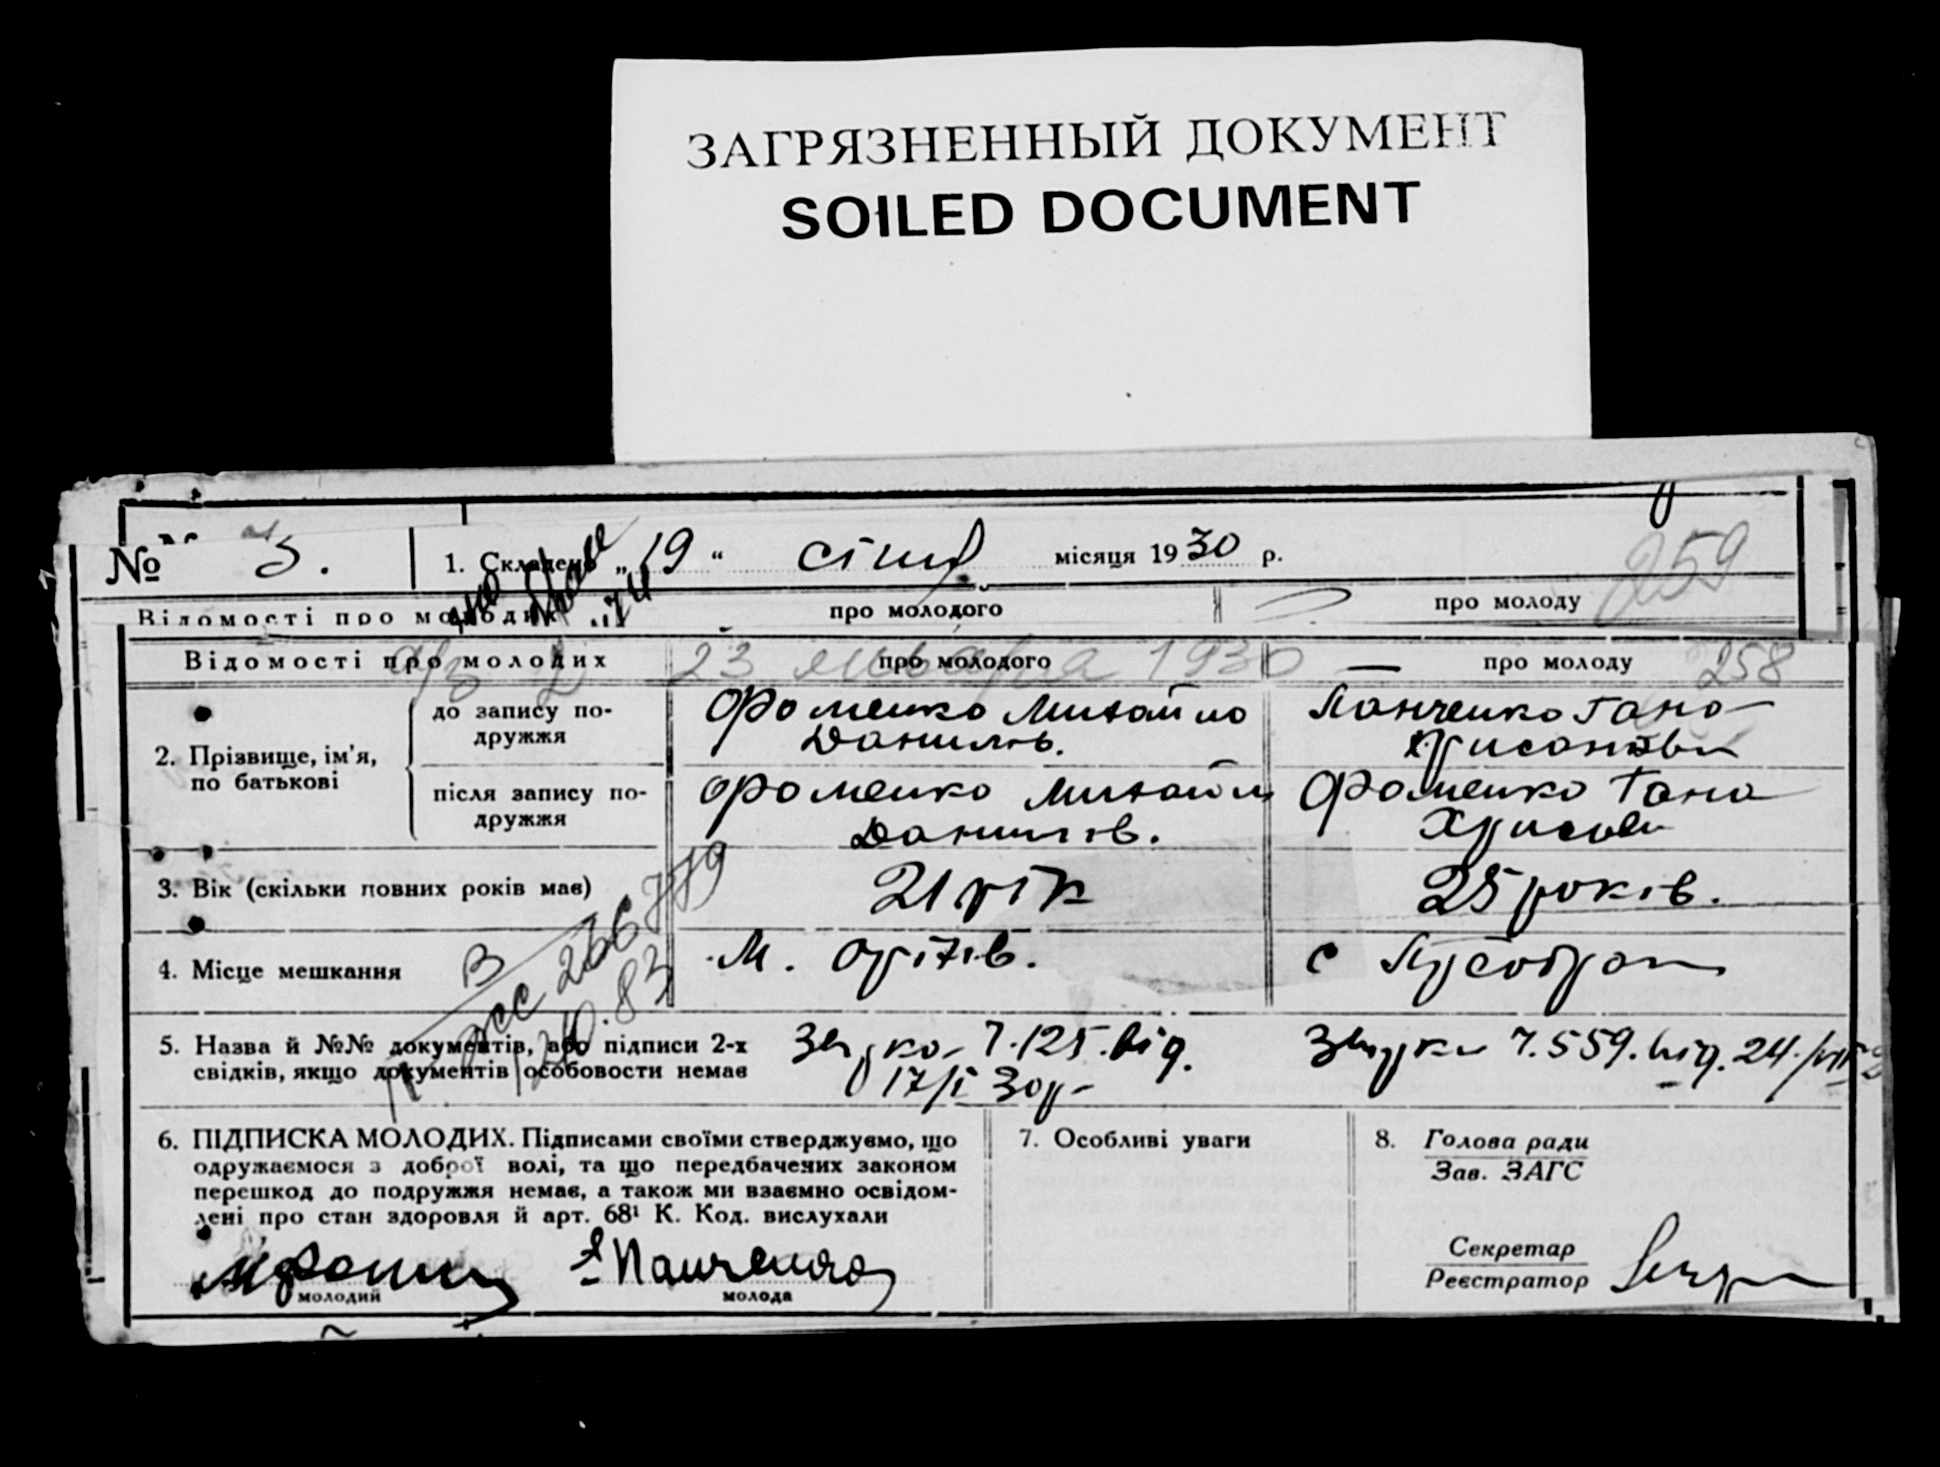 ЗАГРЯЗНЕННЫЙ ДОКУМЕНТ
SOILED DOCUMENT
№ 3. 1. Складено „19“ січня місяця 1930 р. 259
Відомості про молодих про молодого про молоду
23 января 1930
Відомості про молодих про молодого про молоду 258
2. Прізвище, ім'я, по батькові
до запису по-
дружжя
Фоменко Михайло
Данилів.
Панченко Гана
після запису по-
дружжя
Фоменко Михайл
Данилів.
Фоменко Гана
3. Вік (скільки повних років має) 21 рік 25 років.
4. Місце мешкання м. Оріхів. с
В
266779
20.83
5. Назва й №№ документів, або підписи 2-х
свідків, якщо документів особовости немає
ч. 125. від.
17/І 30р
ч. 559. від. 24
6. ПІДПИСКА МОЛОДИХ. Підписами своїми стверджуємо, що
одружаємося з доброї волі, та що передбачених законом
перешкод до подружжя немає, а також ми взаємно освідом-
лені про стан здоровля й арт. 68¹ К. Код. вислухали
молодий
Панченко
молода
7. Особливі уваги
8. Голова ради
Зав. ЗАГС
Секретар
Реєстратор